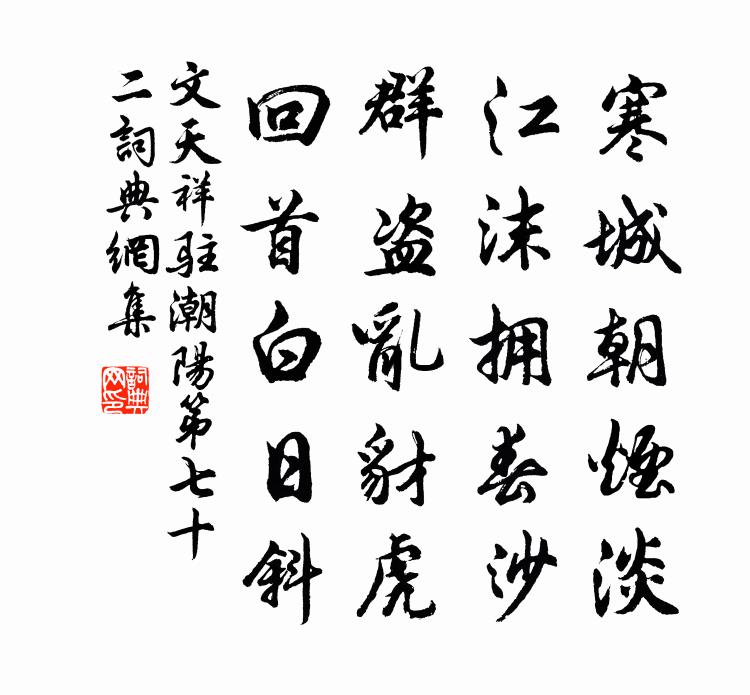 寒城朝煙淡
江沫拥春沙
群盗亂豺虎
回首白日斜
文天祥駐潮陽第七十
二詞典網集
詞典網印